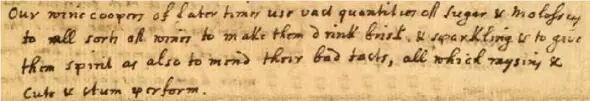 Our wine coopers of later times use vast quantities of Sugar & Molosses
to all sorts of wines to make them drink brisk & sparkling & to give
them spirit as also to mend their bad tasts, all which raysins &
Cute & stum perform.